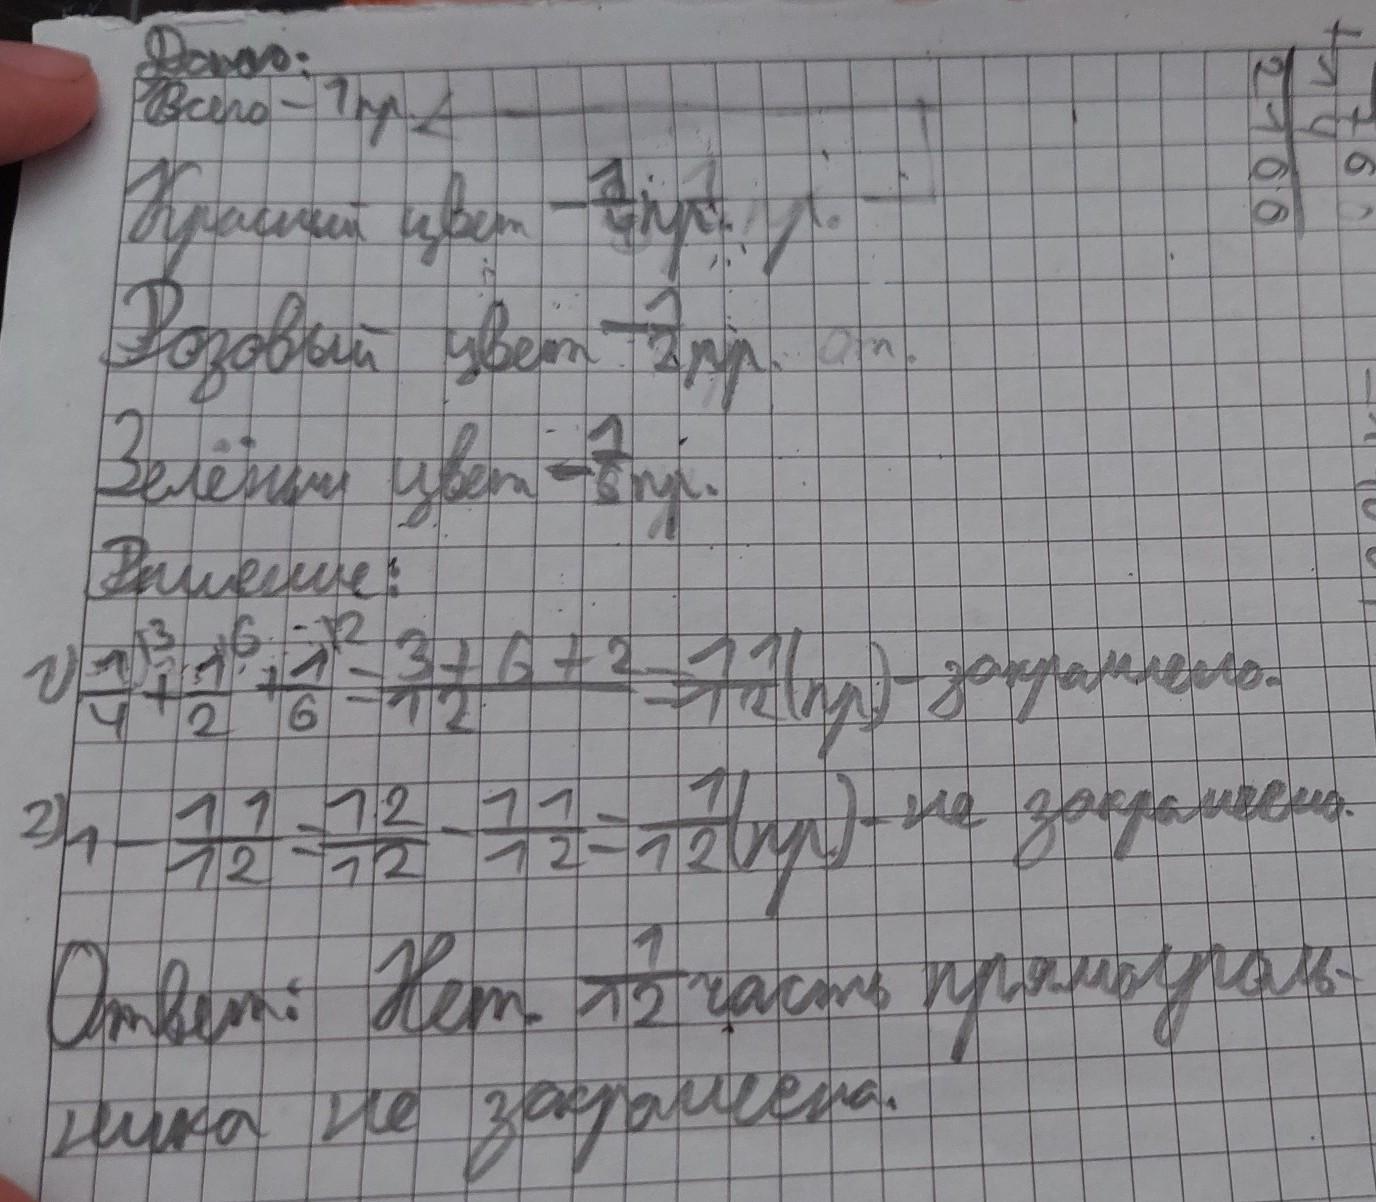 Дано:
Всего - 1 пр.
Красный цвет - 1/4 пр.
Розовый цвет - 1/2 пр.
Зелёный цвет - 1/6 пр.
Решение:
1) 1/4 )3 + 1/2 )6 + 1/6 )2 = 3+6+2/12 = 11/12 (пр) - закрашено.
2) 1 - 11/12 = 12/12 - 11/12 = 1/12 (пр) - не закрашено.
Ответ: Нет. 1/12 часть прямоуголь-
ника не закрашена.